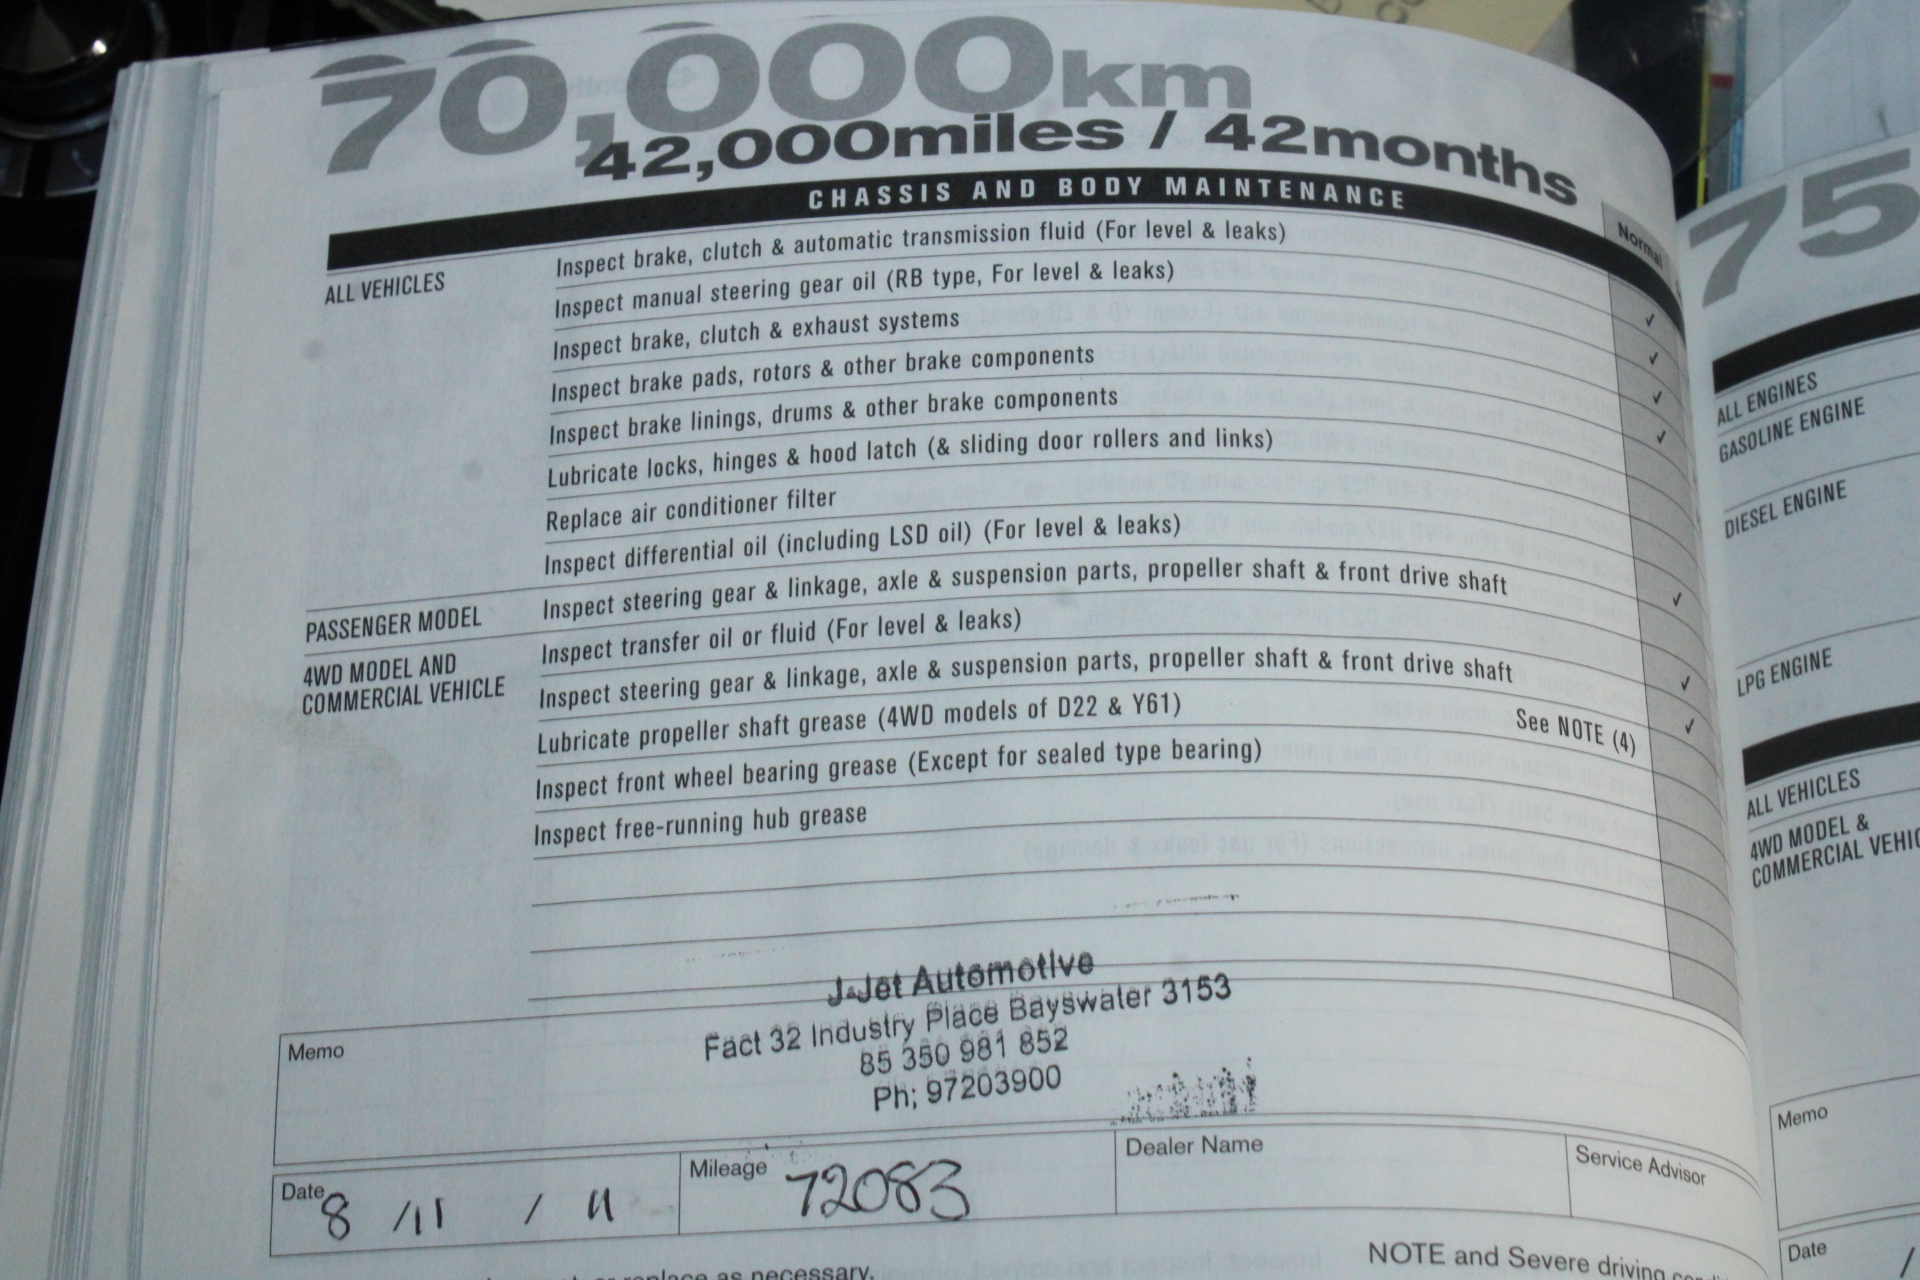 70,000km
42,000miles / 42months
CHASSIS AND BODY MAINTENANCE
Normal
ALL VEHICLES
Inspect brake, clutch & automatic transmission fluid (For level & leaks)
Inspect manual steering gear oil (RB type, For level & leaks) ✓
Inspect brake, clutch & exhaust systems ✓
Inspect brake pads, rotors & other brake components ✓
Inspect brake linings, drums & other brake components ✓
Lubricate locks, hinges & hood latch (& sliding door rollers and links)
Replace air conditioner filter
Inspect differential oil (including LSD oil) (For level & leaks)
PASSENGER MODEL
Inspect steering gear & linkage, axle & suspension parts, propeller shaft & front drive shaft ✓
4WD MODEL AND
COMMERCIAL VEHICLE
Inspect transfer oil or fluid (For level & leaks)
Inspect steering gear & linkage, axle & suspension parts, propeller shaft & front drive shaft ✓
Lubricate propeller shaft grease (4WD models of D22 & Y61) See NOTE (4) ✓
Inspect front wheel bearing grease (Except for sealed type bearing)
Inspect free-running hub grease
J-Jet Automotive
Fact 32 Industry Place Bayswater 3153
85 350 981 852
Ph; 97203900
Memo
Date 8 /11 / 11
Mileage 72083
Dealer Name
Service Advisor
replace as necessary.
NOTE and Severe driving
75
ALL ENGINES
GASOLINE ENGINE
DIESEL ENGINE
LPG ENGINE
ALL VEHICLES
4WD MODEL &
COMMERCIAL VEHIC
Memo
Date /